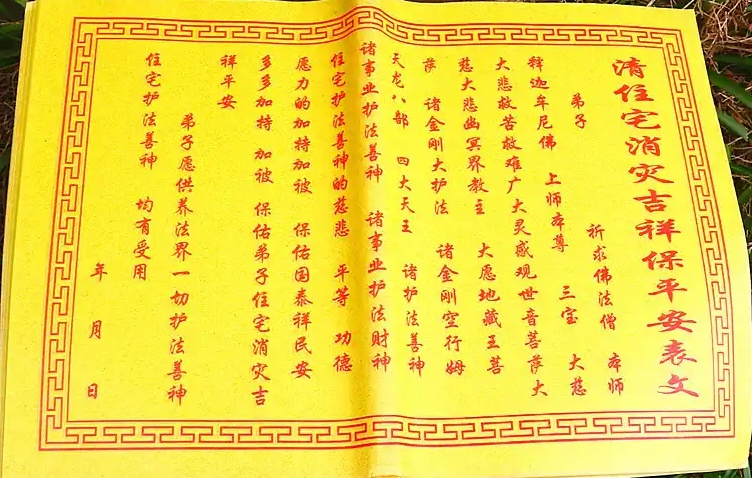 清住宅消灾吉祥保平安表文
弟子 祈求佛法僧 本师
释迦牟尼佛 上师本尊 三宝 大慈
大悲救苦救难广大灵感观世音菩萨大
慈大悲幽冥界教主 大愿地藏王菩
萨 诸金刚大护法 诸金刚空行姆
天龙八部 四大天王 诸护法善神
诸事业护法善神 诸事业护法财神
住宅护法善神的慈悲 平等 功德
愿力的加持加被 保佑国泰祥民安
多多加持 加被 保佑弟子住宅消灾吉
祥平安
弟子愿供养法界一切护法善神
住宅护法善神 均有受用
年 月 日